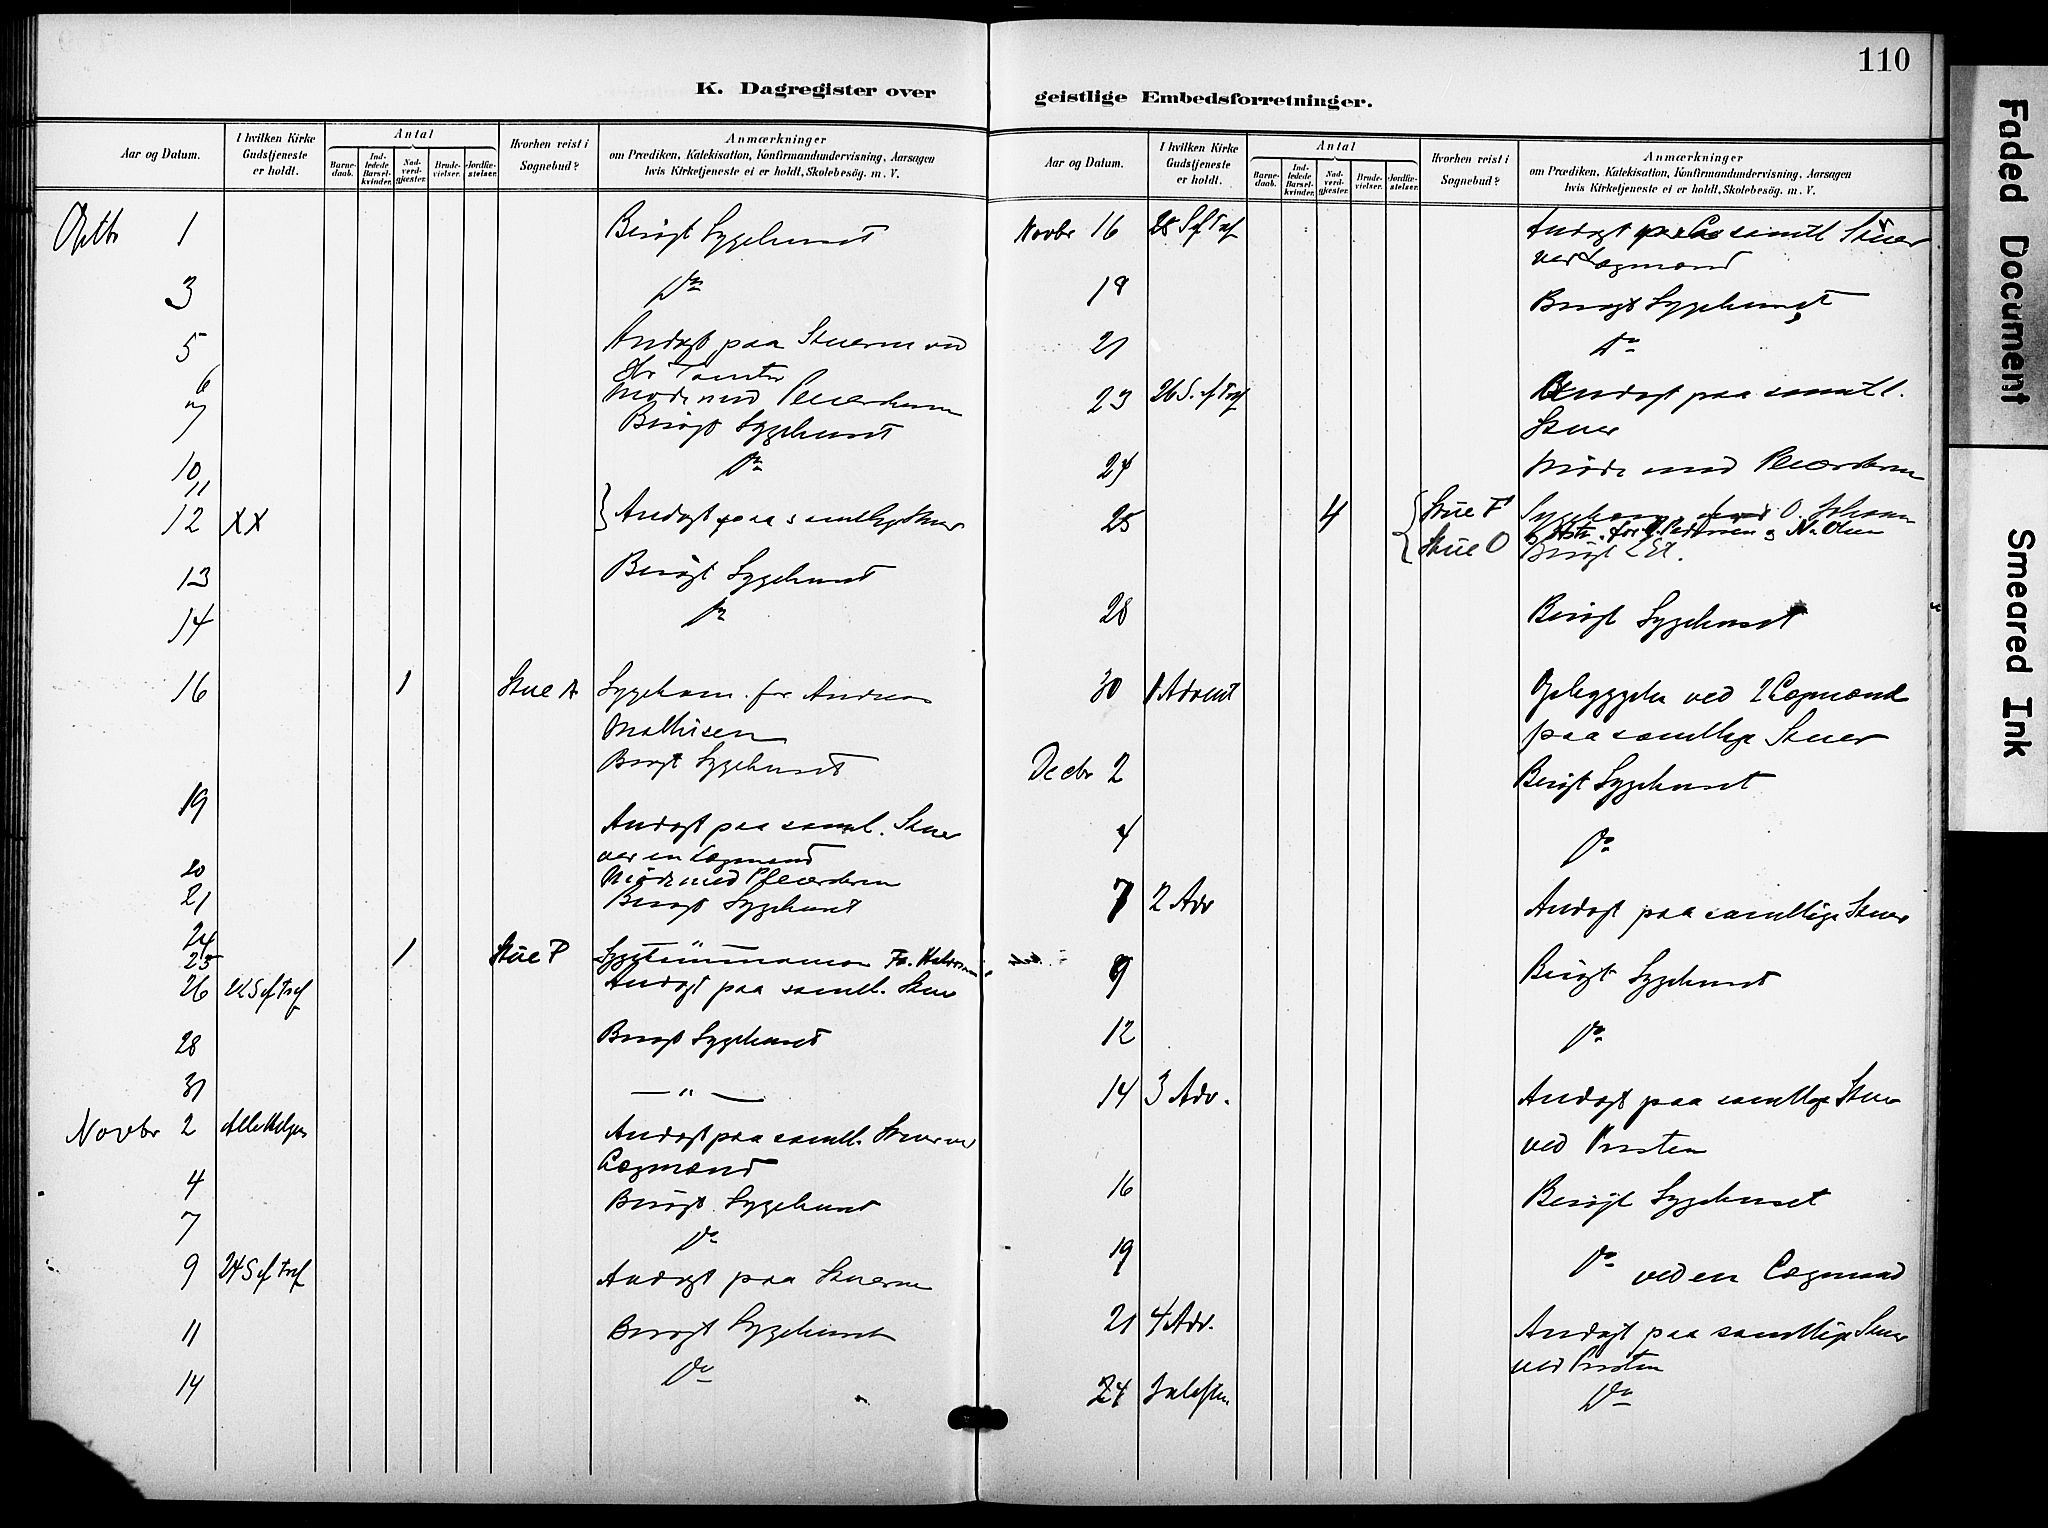 110
K. Dagregister over geistlige Embedsforretninger.
Aar og Datum.
I hvilken Kirke Gudstjeneste er holdt.
Antal
Barnedaab.
Indledede Barselkvinder.
Nadverdgjester.
Brudevielser.
Jordfæstelser.
Hvorhen reist i Sognebud?
Anmærkninger
om Prædiken, Katekisation, Konfirmandundervisning, Aarsagen
hvis Kirketjeneste ei er holdt, Skolebesøg. m. V.
Oktbr 1 Besøgt Sygehuset
3 Do
5 Andagt paa Stuerne ved
Hr Tomter
6 Møde med Plejerskerne
7 Besøgt Sygehuset
10 Do
11
12 XX Andagt paa samtlige Stuer
13 Besøgt Sygehuset
14 Do
16 1 Stue A Sygekom. for Andreas
Mathisen
Besøgt Sygehuset
19 Andagt paa samtl. Stuer
ved en Lægmand
20 Møde med Plejerskerne
21 Besøgt Sygehuset
24
25 1 Stue P
26 22 S ef Tref Andagt paa samtl. Stuer
28 Besøgt Sygehuset
31 — " —
Novbr 2 Allehelgen Andagt paa samtl. Stuer ved
Lægmænd
4 Besøgt Sygehuset
7 Do
9 24 S ef Tref Andagt paa Stuerne
11 Besøgt Sygehuset
14 Do
Aar og Datum.
I hvilken Kirke Gudstjeneste er holdt.
Antal
Barnedaab.
Indledede Barselkvinder.
Nadverdgjester.
Brudevielser.
Jordfæstelser.
Hvorhen reist i Sognebud?
Anmærkninger
om Prædiken, Katekisation, Konfirmandundervisning, Aarsagen
hvis Kirketjeneste ei er holdt, Skolebesøg. m. V.
Novbr 16 25 S ef Tref Andagt paa samtl Stuer
ved Lægmænd
19 Besøgt Sygehuset
21 Do
23 26 S. ef Tref Andagt paa samtl.
Stuer
24 Møde med Plejerskerne
25 4 Stue F
Stue O Pedersen og N. Olsen
Besøgt
28 Besøgt Sygehuset
30 1 Advent Opbyggelse ved 2 Lægmænd
paa samtlige Stuer
Decbr 2 Besøgt Sygehuset
4 Do
7 2 Adv Andagt paa samtlige Stuer
9 Besøgt Sygehuset
12 Do
14 3 Adv. Andagt paa samtlige Stuer
ved Presten
16 Besøgt Sygehuset
19 Do ved en Lægmand
21 4 Adv. Andagt paa samtlige Stuer
ved Presten
24 Juleften Do
Faded Document
Smeared Ink